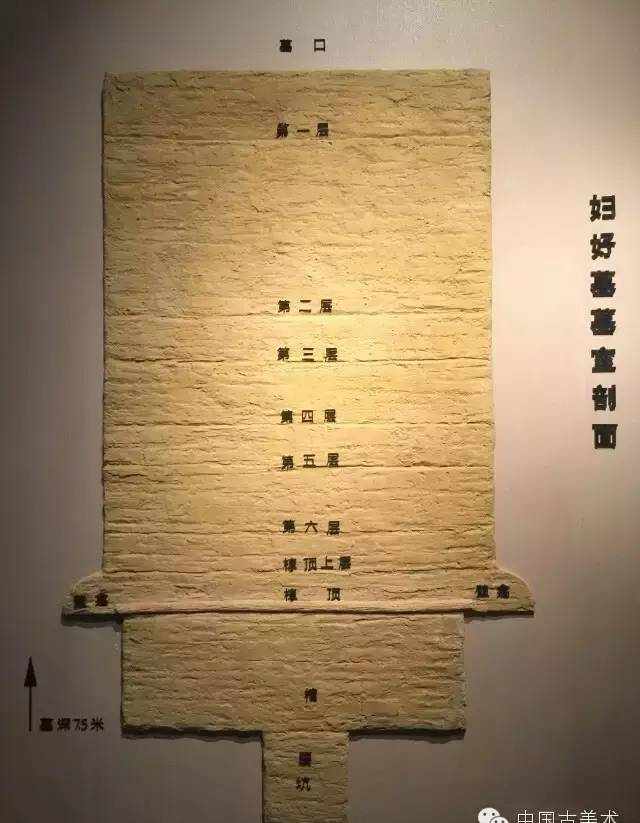 墓口
第一层
第二层
第三层
第四层
第五层
第六层
椁顶上层
椁顶
壁龛
壁龛
椁
腰坑
墓深7.5米
妇好墓墓室剖面
中国古美术